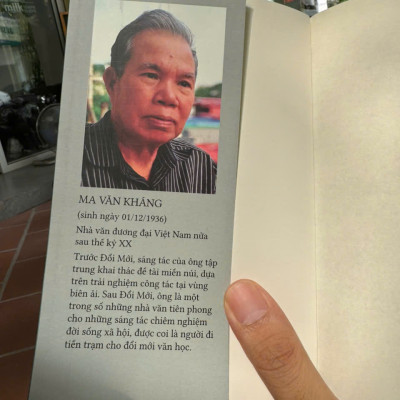 milk
MA VĂN KHÁNG
(sinh ngày 01/12/1936)
Nhà văn đương đại Việt Nam nửa
sau thế kỷ XX
Trước Đổi Mới, sáng tác của ông tập
trung khai thác đề tài miền núi, dựa
trên trải nghiệm công tác tại vùng
biên ải. Sau Đổi Mới, ông là một
trong số những nhà văn tiên phong
cho những sáng tác chiêm nghiệm
đời sống xã hội, được coi là người đi
tiền trạm cho đổi mới văn học.